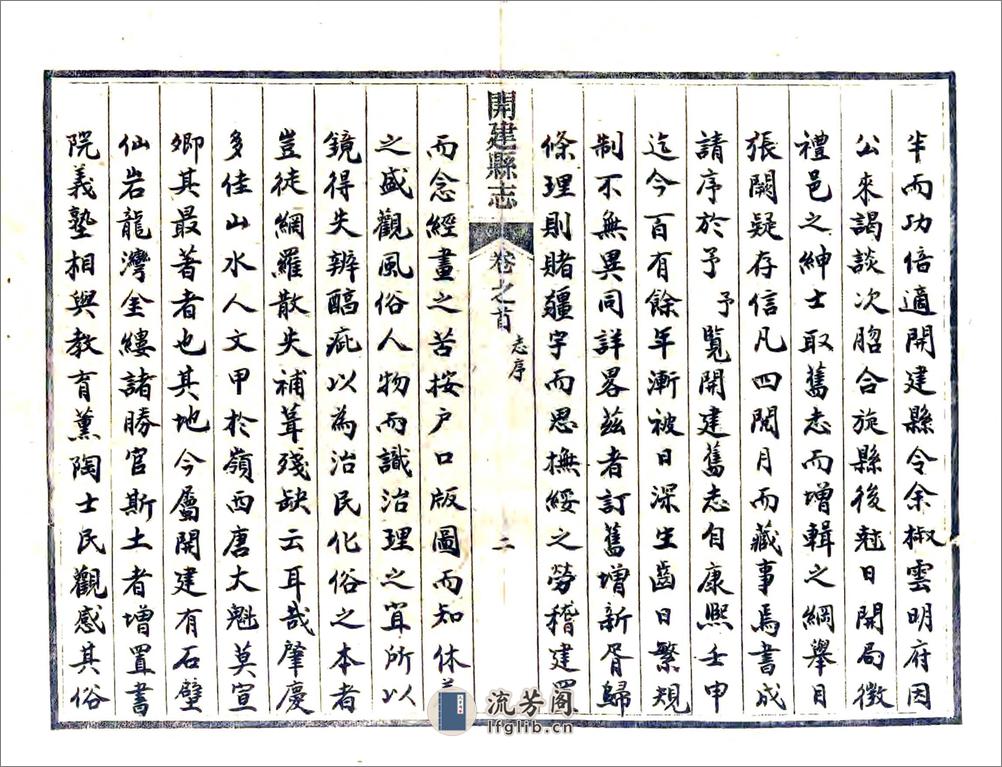 半而功倍適開建縣令余椒雲明府因
公來謁談次脗合旋縣後尅日開局徵
禮邑之紳士取舊志而增輯之綱舉目
張闕疑存信凡四閱月而蕆事焉書成
請序於予予覽開建舊志自康熙壬申
迄今百有餘年漸被日深生齒日繁規
制不無異同詳畧茲者訂舊增新胥歸
條理則睹疆宇而思撫綏之勞稽建置
開建縣志 卷之首 志序 二
而念經畫之苦按户口版圖而知休
之盛觀風俗人物而識治理之宜所以
鏡得失辨醕疵以為治民化俗之本者
豈徒網羅散失補葺殘缺云耳哉肇慶
多佳山水人文甲於嶺西唐大魁莫宣
卿其最著者也其地今屬開建有石壁
仙岩龍灣金縷諸勝官斯土者增置書
院義塾相與教育薰陶士民觀感其俗
流芳阁
lfglib.cn